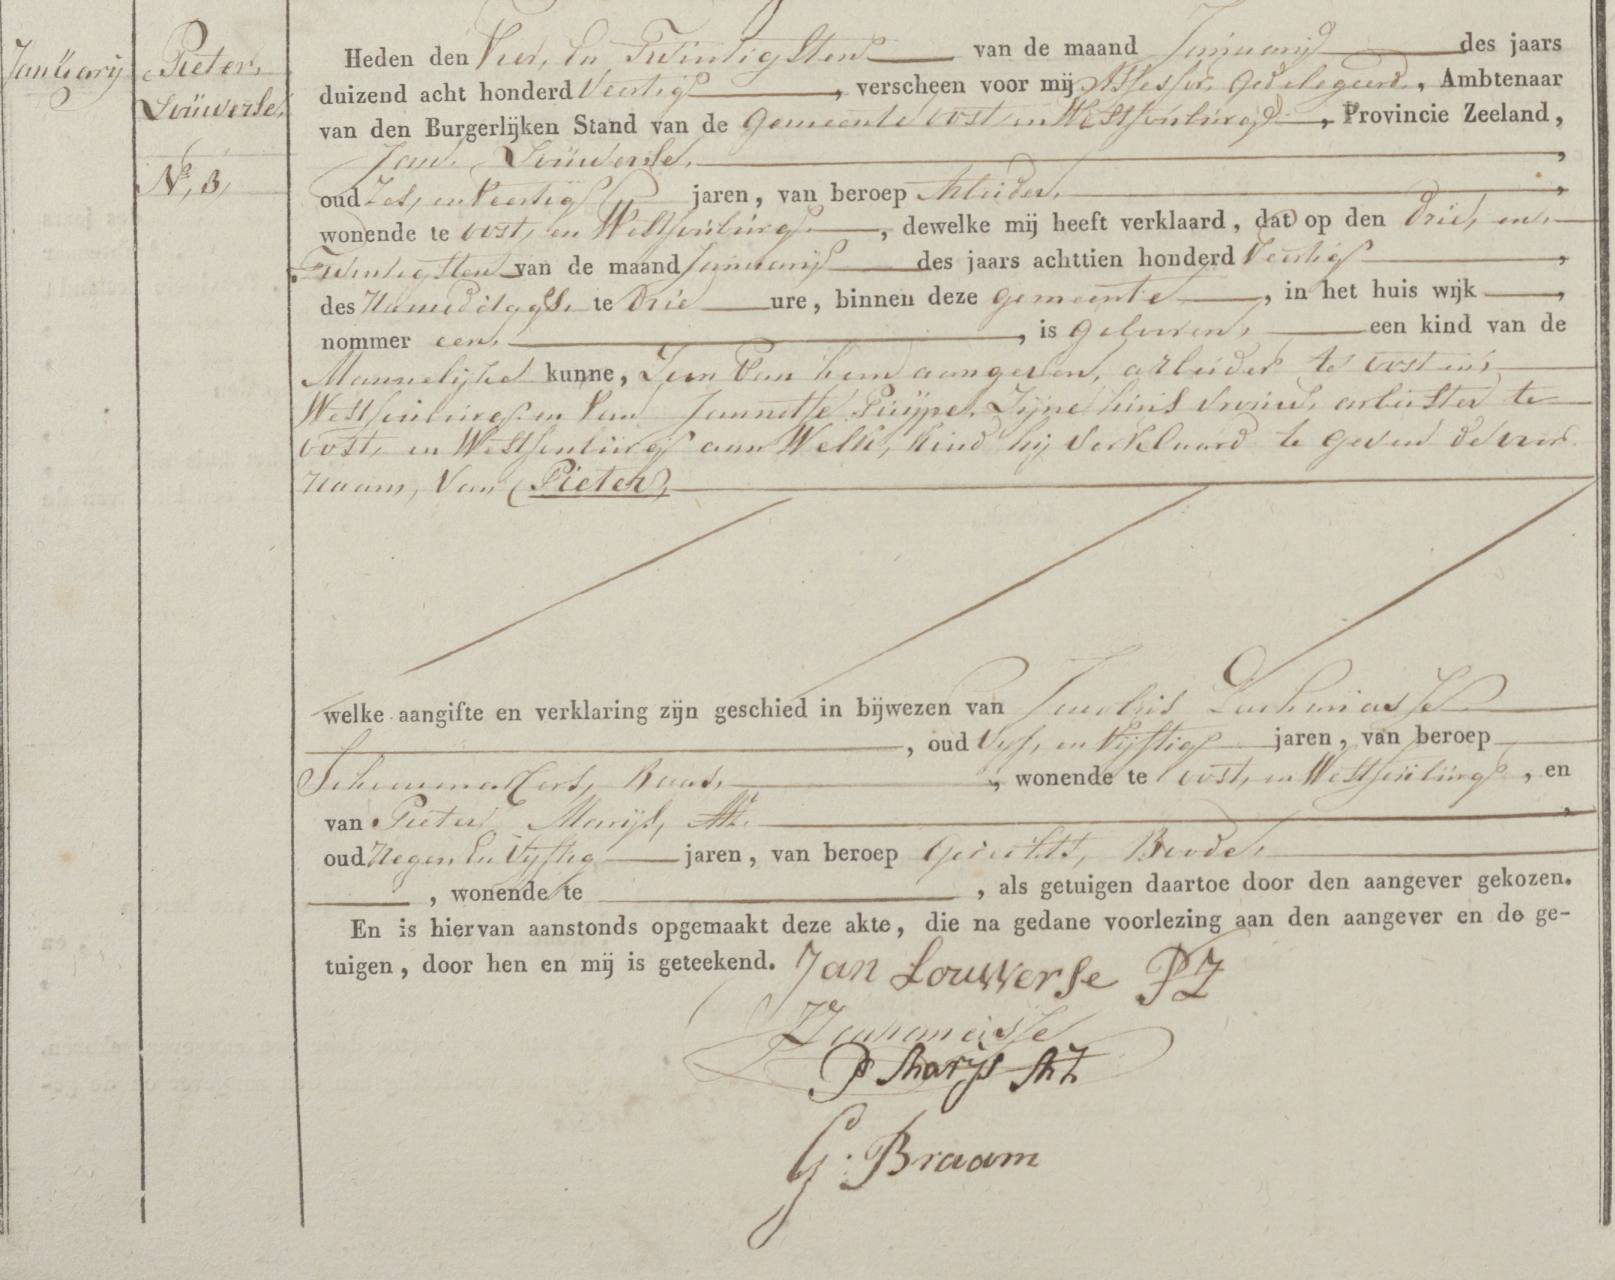 Januarij
Pieter,
Louwerse,
N.º 3,
Heden den Vier, En Twintigsten van de maand Januarij des jaars
duizend acht honderd Veertig, verscheen voor mij Assessor, Gedelegeerd, Ambtenaar
van den Burgerlijken Stand van de Gemeente oost, en Westsouburg, Provincie Zeeland,
Jan, Louwerse,
oud Zes, en Veertig jaren, van beroep Arbeider,
wonende te oost, en Westsouburg, dewelke mij heeft verklaard, dat op den Drie, en,
Twintigsten van de maand Januarij des jaars achttien honderd Veertig,
des Namiddags, te Drie ure, binnen deze gemeente, in het huis wijk,
nommer een, , is geboren, een kind van de
Mannelijke kunne, Zoon Van hem aangever, arbeider te oost en,
Westsouburg, en Van Jannetje Puijpe, Zijne huis vrouw, arbeister te
oost, en Westsouburg aan Welk, Kind hij verklaard te geven de voor
Naam, Van (Pieter,)
welke aangifte en verklaring zijn geschied in bijwezen van Jacobus
, oud Vyf, en Vijftig jaren, van beroep
Schoenmakers, Baas, , wonende te oost, en Westsouburg, en
van Pieter Marijs, Az.
oud Negen En Vyftig jaren, van beroep Gerechts, Bode,
, wonende te , als getuigen daartoe door den aangever gekozen.
En is hiervan aanstonds opgemaakt deze akte, die na gedane voorlezing aan den aangever en de ge-
tuigen, door hen en mij is geteekend. Jan Louwerse PZ
P Marijs AZ
G. Braam